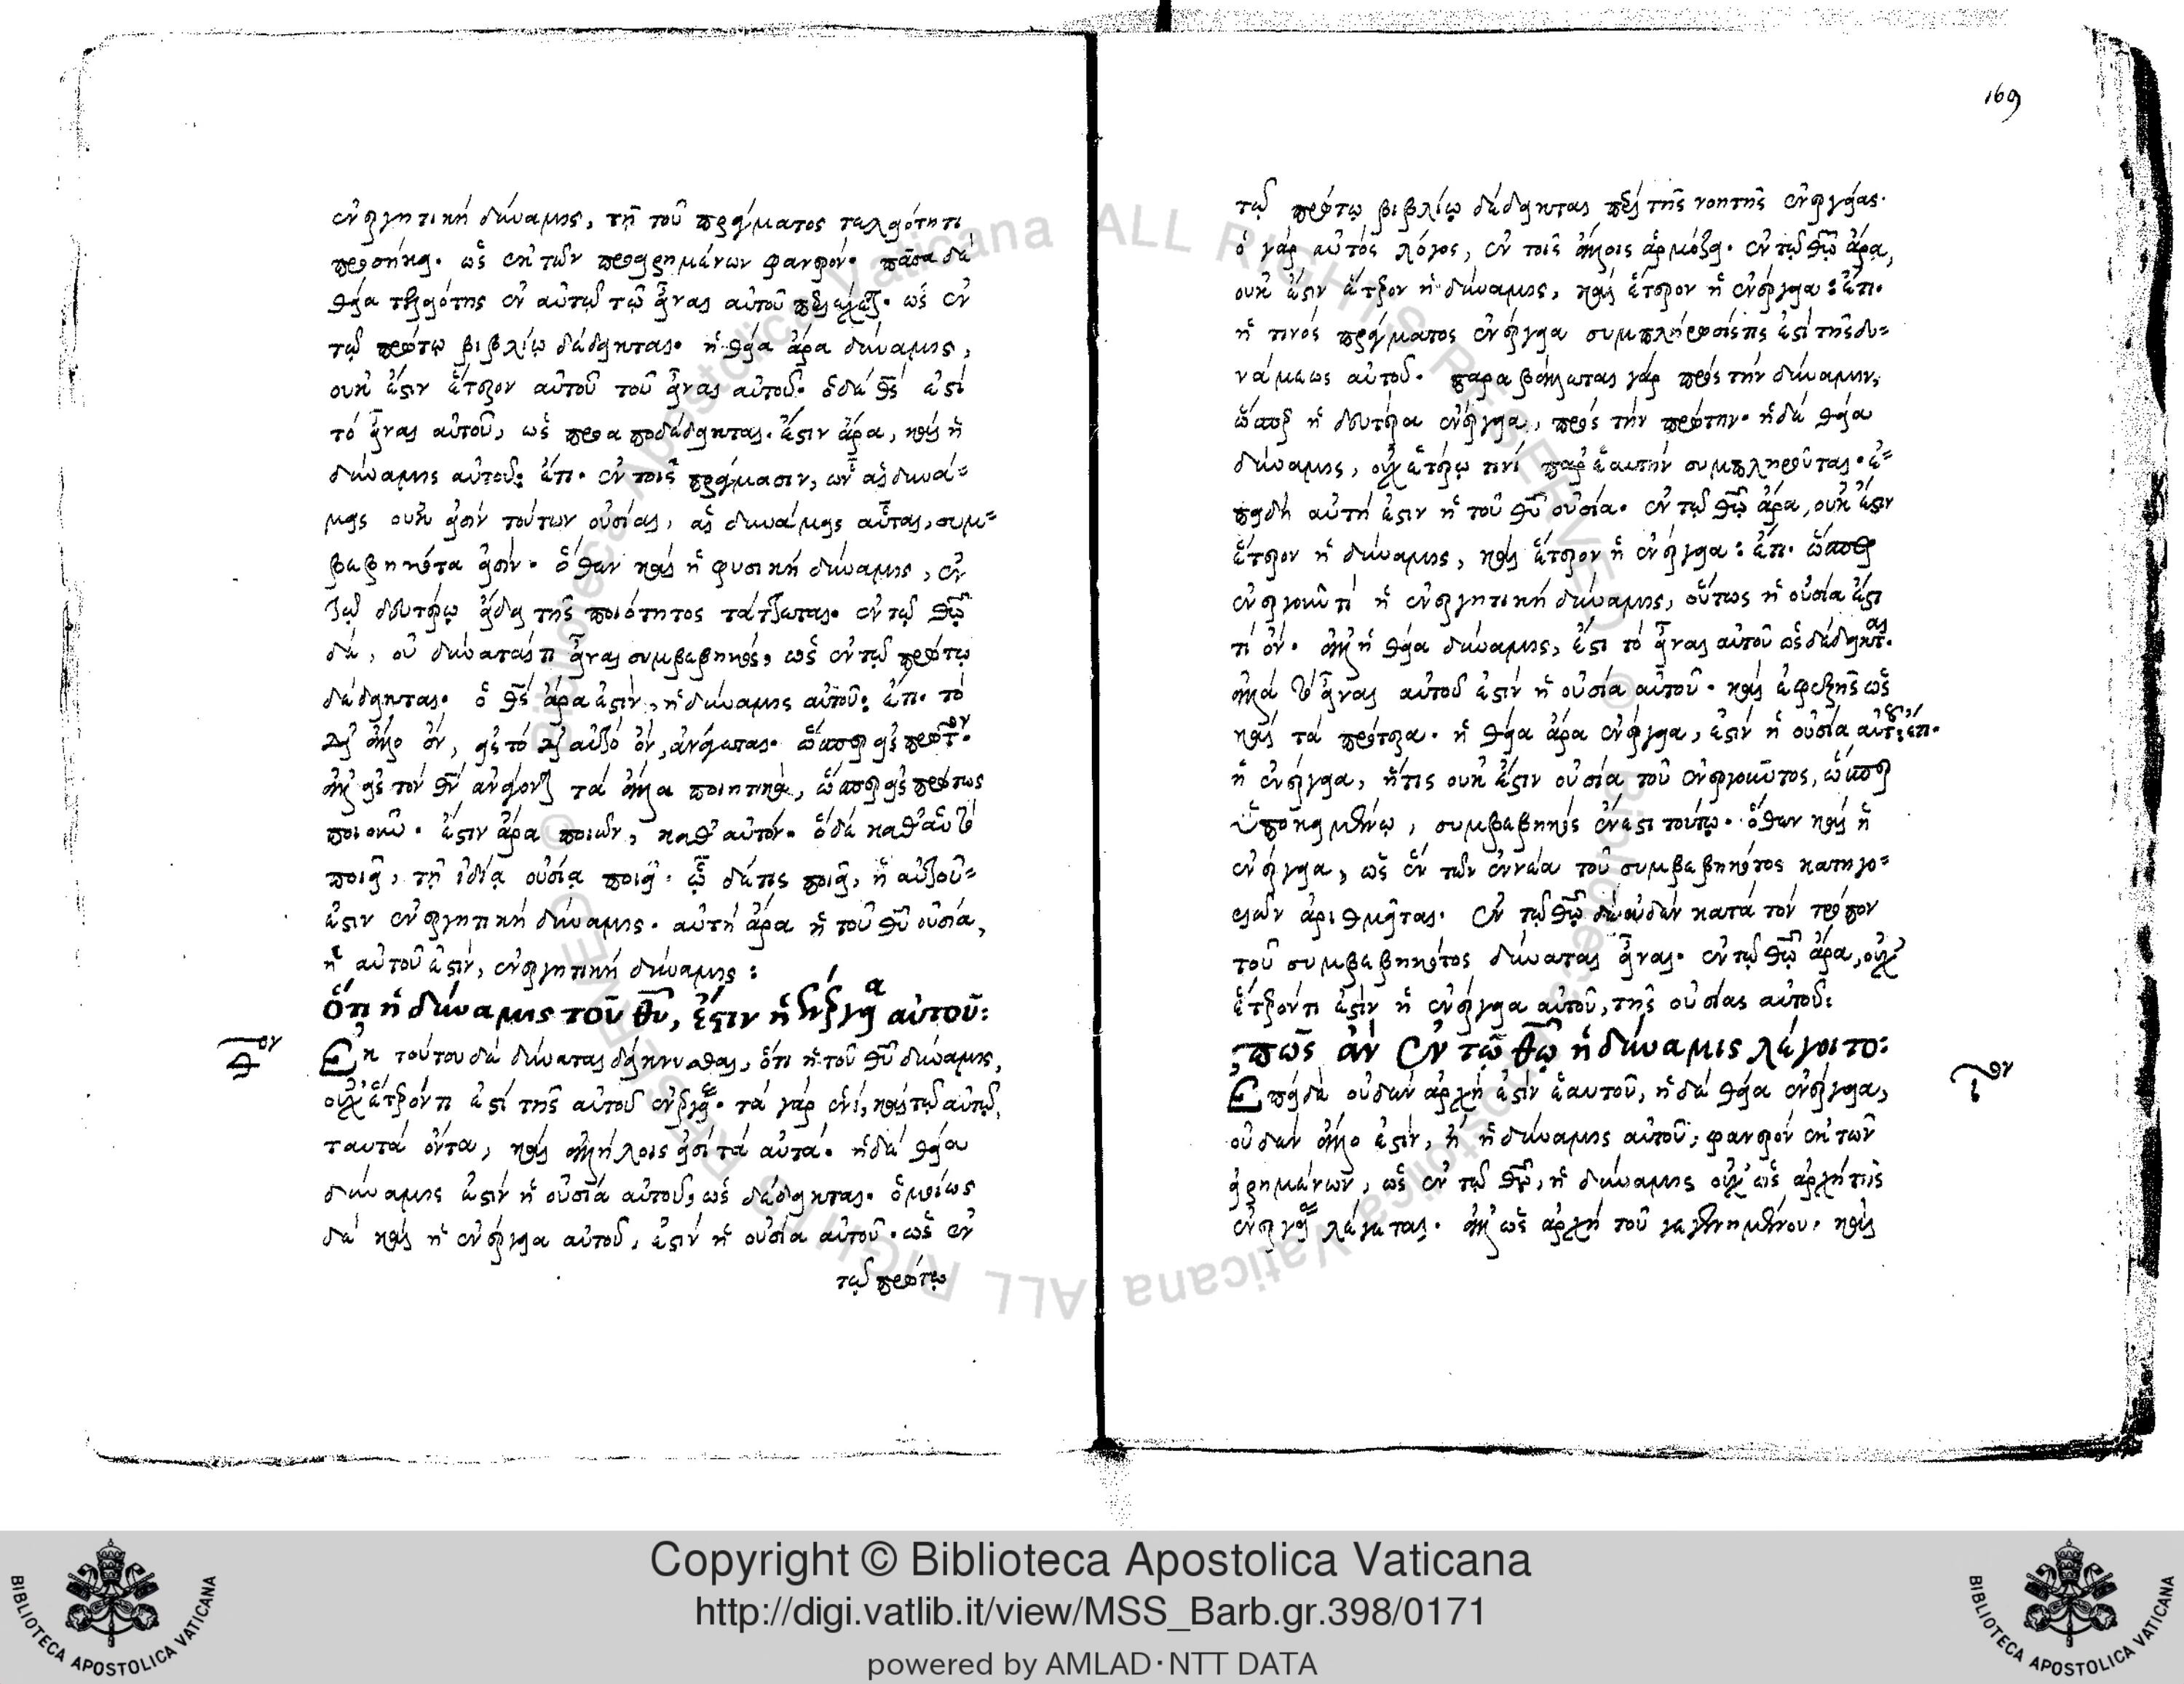 ἐνεργητικὴ δύναμις, τῇ τοῦ πράγματος τελειότητι
προσήκει. ὡς ἐκ τῶν προειρημένων φανερόν. πᾶσα δὲ
θεία τελειότης ἐν αὐτῷ τῷ εἶναι αὐτοῦ περιέχεται. ὡς ἐν
τῷ πρώτῳ βιβλίῳ δέδεικται. ἡ θεία ἄρα δύναμις,
οὐκ ἔστιν ἕτερον αὐτοῦ τοῦ εἶναι αὐτοῦ. ὁ δὲ θς ἐστὶ
τὸ εἶναι αὐτοῦ, ὡς προαποδέδεικται. ἔστιν ἄρα, καὶ ἡ
δύναμις αὐτοῦ: ἔτι. ἐν τοῖς πράγμασιν, ὧν αἱ δυνά-
μεις οὐκ εἰσὶν τούτων οὐσίαι, αἱ δυνάμεις αὗται, συμ-
βεβηκότα εἰσίν. ὅθεν καὶ ἡ φυσικὴ δύναμις, ἐν
τῷ δευτέρῳ εἴδει τῆς ποιότητος τάττεται. ἐν τῷ θῷ
δὲ, οὐ δύναταί τι εἶναι συμβεβηκός, ὡς ἐν τῷ πρώτῳ
δέδεικται. ὁ θς ἄρα ἐστὶν, ἡ δύναμις αὐτοῦ: ἔτι. τὸ
δι' ἄλλο ὂν, εἰς τὸ δι' αὑτὸ ὂν, ἀνάγεται. ὥσπερ εἰς πρῶτον.
ἀλλ' εἰς τὸν θν ἀνάγονται τὰ ἄλλα ποιητικὰ, ὥσπερ εἰς πρώτως
ποιοῦν. ἔστιν ἄρα ποιῶν, καθ' αὑτόν. ὃ δὲ καθ' αὑτὸ
ποιεῖ, τῇ ἰδίᾳ οὐσίᾳ ποιεῖ. ᾧ δέ τις ποιεῖ, ἡ αὐτοῦ
ἐστιν ἐνεργητικὴ δύναμις. αὐτὴ ἄρα ἡ τοῦ θυ οὐσία,
ἡ αὐτοῦ ἐστὶν, ἐνεργητικὴ δύναμις:
Ὅτι ἡ δύναμις τοῦ θυ, ἔστιν ἡ ἐνέργεια αὐτοῦ:
θον
Ἐκ τούτου δὲ δύναται δείκνυσθαι, ὅτι ἡ τοῦ θυ δύναμις,
οὐχ ἕτερόν τι ἐστὶ τῆς αὐτοῦ ἐνεργείας. τὰ γὰρ ἑνὶ, καὶ τῷ αὐτῷ,
ταυτὰ ὄντα, καὶ ἀλλήλοις εἰσὶ τὰ αὐτά. ἡ δὲ θεία
δύναμις ἐστὶν ἡ οὐσία αὐτοῦ, ὡς δέδεικται. ὁμοίως
δὲ καὶ ἡ ἐνέργεια αὐτοῦ, ἐστὶν ἡ οὐσία αὐτοῦ. ὡς ἐν
τῷ πρώτῳ
169
τῷ πρώτῳ βιβλίῳ δέδεικται περὶ τῆς νοητῆς ἐνεργείας.
ὁ γὰρ αὐτὸς λόγος, ἐν τοῖς ἄλλοις ἁρμόζει. ἐν τῷ θῷ ἄρα,
οὐκ ἔστιν ἕτερον ἡ δύναμις, καὶ ἕτερον ἡ ἐνέργεια: ἔτι.
ἥ τινὸς πράγματος ἐνέργεια συμπλήρωσίς τις ἐστὶ τῆς δυ-
νάμεως αὐτοῦ. παραβάλλεται γὰρ πρὸς τὴν δύναμιν,
ὥσπερ ἡ δευτέρα ἐνέργεια, πρὸς τὴν πρώτην. ἡ δὲ θεία
δύναμις, οὐχ ἑτέρῳ τινὶ παρ' ἑαυτὴν συμπληροῦται. ἐ-
πειδὴ αὐτή ἐστιν ἡ τοῦ θυ οὐσία. ἐν τῷ θῷ ἄρα, οὐκ ἔστιν
ἕτερον ἡ δύναμις, καὶ ἕτερον ἡ ἐνέργεια: ἔτι. ὥσπερ
ἐνεργοῦν τί ἡ ἐνεργητικὴ δύναμις, οὕτως ἡ οὐσία ἐστί
τί ὄν. ἀλλ' ἡ θεία δύναμις, ἔστι τὸ εἶναι αὐτοῦ ὡς δέδεικται.
ἀλλὰ τὸ εἶναι αὐτοῦ ἐστὶν ἡ οὐσία αὐτοῦ. καὶ ἐφεξῆς ὡς
καὶ τὰ πρότερα. ἡ θεία ἄρα ἐνέργεια, ἐστὶν ἡ οὐσία αὐτοῦ: ἔτι.
ἡ ἐνέργεια, ἥτις οὐκ ἔστιν οὐσία τοῦ ἐνεργοῦντος, ὥσπερ
ὑποκειμένῳ, συμβεβηκὸς ἔνεστι τούτῳ. ὅθεν καὶ ἡ
ἐνέργεια, ὡς ἓν τῶν ἐννέα τοῦ συμβεβηκότος κατηγο-
ριῶν ἀριθμεῖται. ἐν τῷ θῷ δὲ οὐδὲν κατὰ τὸν τρόπον
τοῦ συμβεβηκότος δύναται εἶναι. ἐν τῷ θῷ ἄρα, οὐχ
ἕτερόν τι ἐστὶν ἡ ἐνέργεια αὐτοῦ, τῆς οὐσίας αὐτοῦ:
πῶς ἂν ἐν τῷ θῷ ἡ δύναμις λέγοιτο:
ιον
Ἐπεὶ δὲ οὐδὲν ἀρχή ἐστιν ἑαυτοῦ, ἡ δὲ θεία ἐνέργεια,
οὐδὲν ἄλλο ἐστὶν, ἢ ἡ δύναμις αὐτοῦ, φανερὸν ἐκ τῶν
εἰρημένων, ὡς ἐν τῷ θῷ, ἡ δύναμις οὐχ ὡς ἀρχὴ τῆς
ἐνεργείας λέγεται. ἀλλ' ὡς ἀρχὴ τοῦ γεγενημένου. καὶ
Copyright © Biblioteca Apostolica Vaticana
http://digi.vatlib.it/view/MSS_Barb.gr.398/0171
powered by AMLAD·NTT DATA
BIBLIOTECA APOSTOLICA VATICANA
BIBLIOTECA APOSTOLICA VATICANA